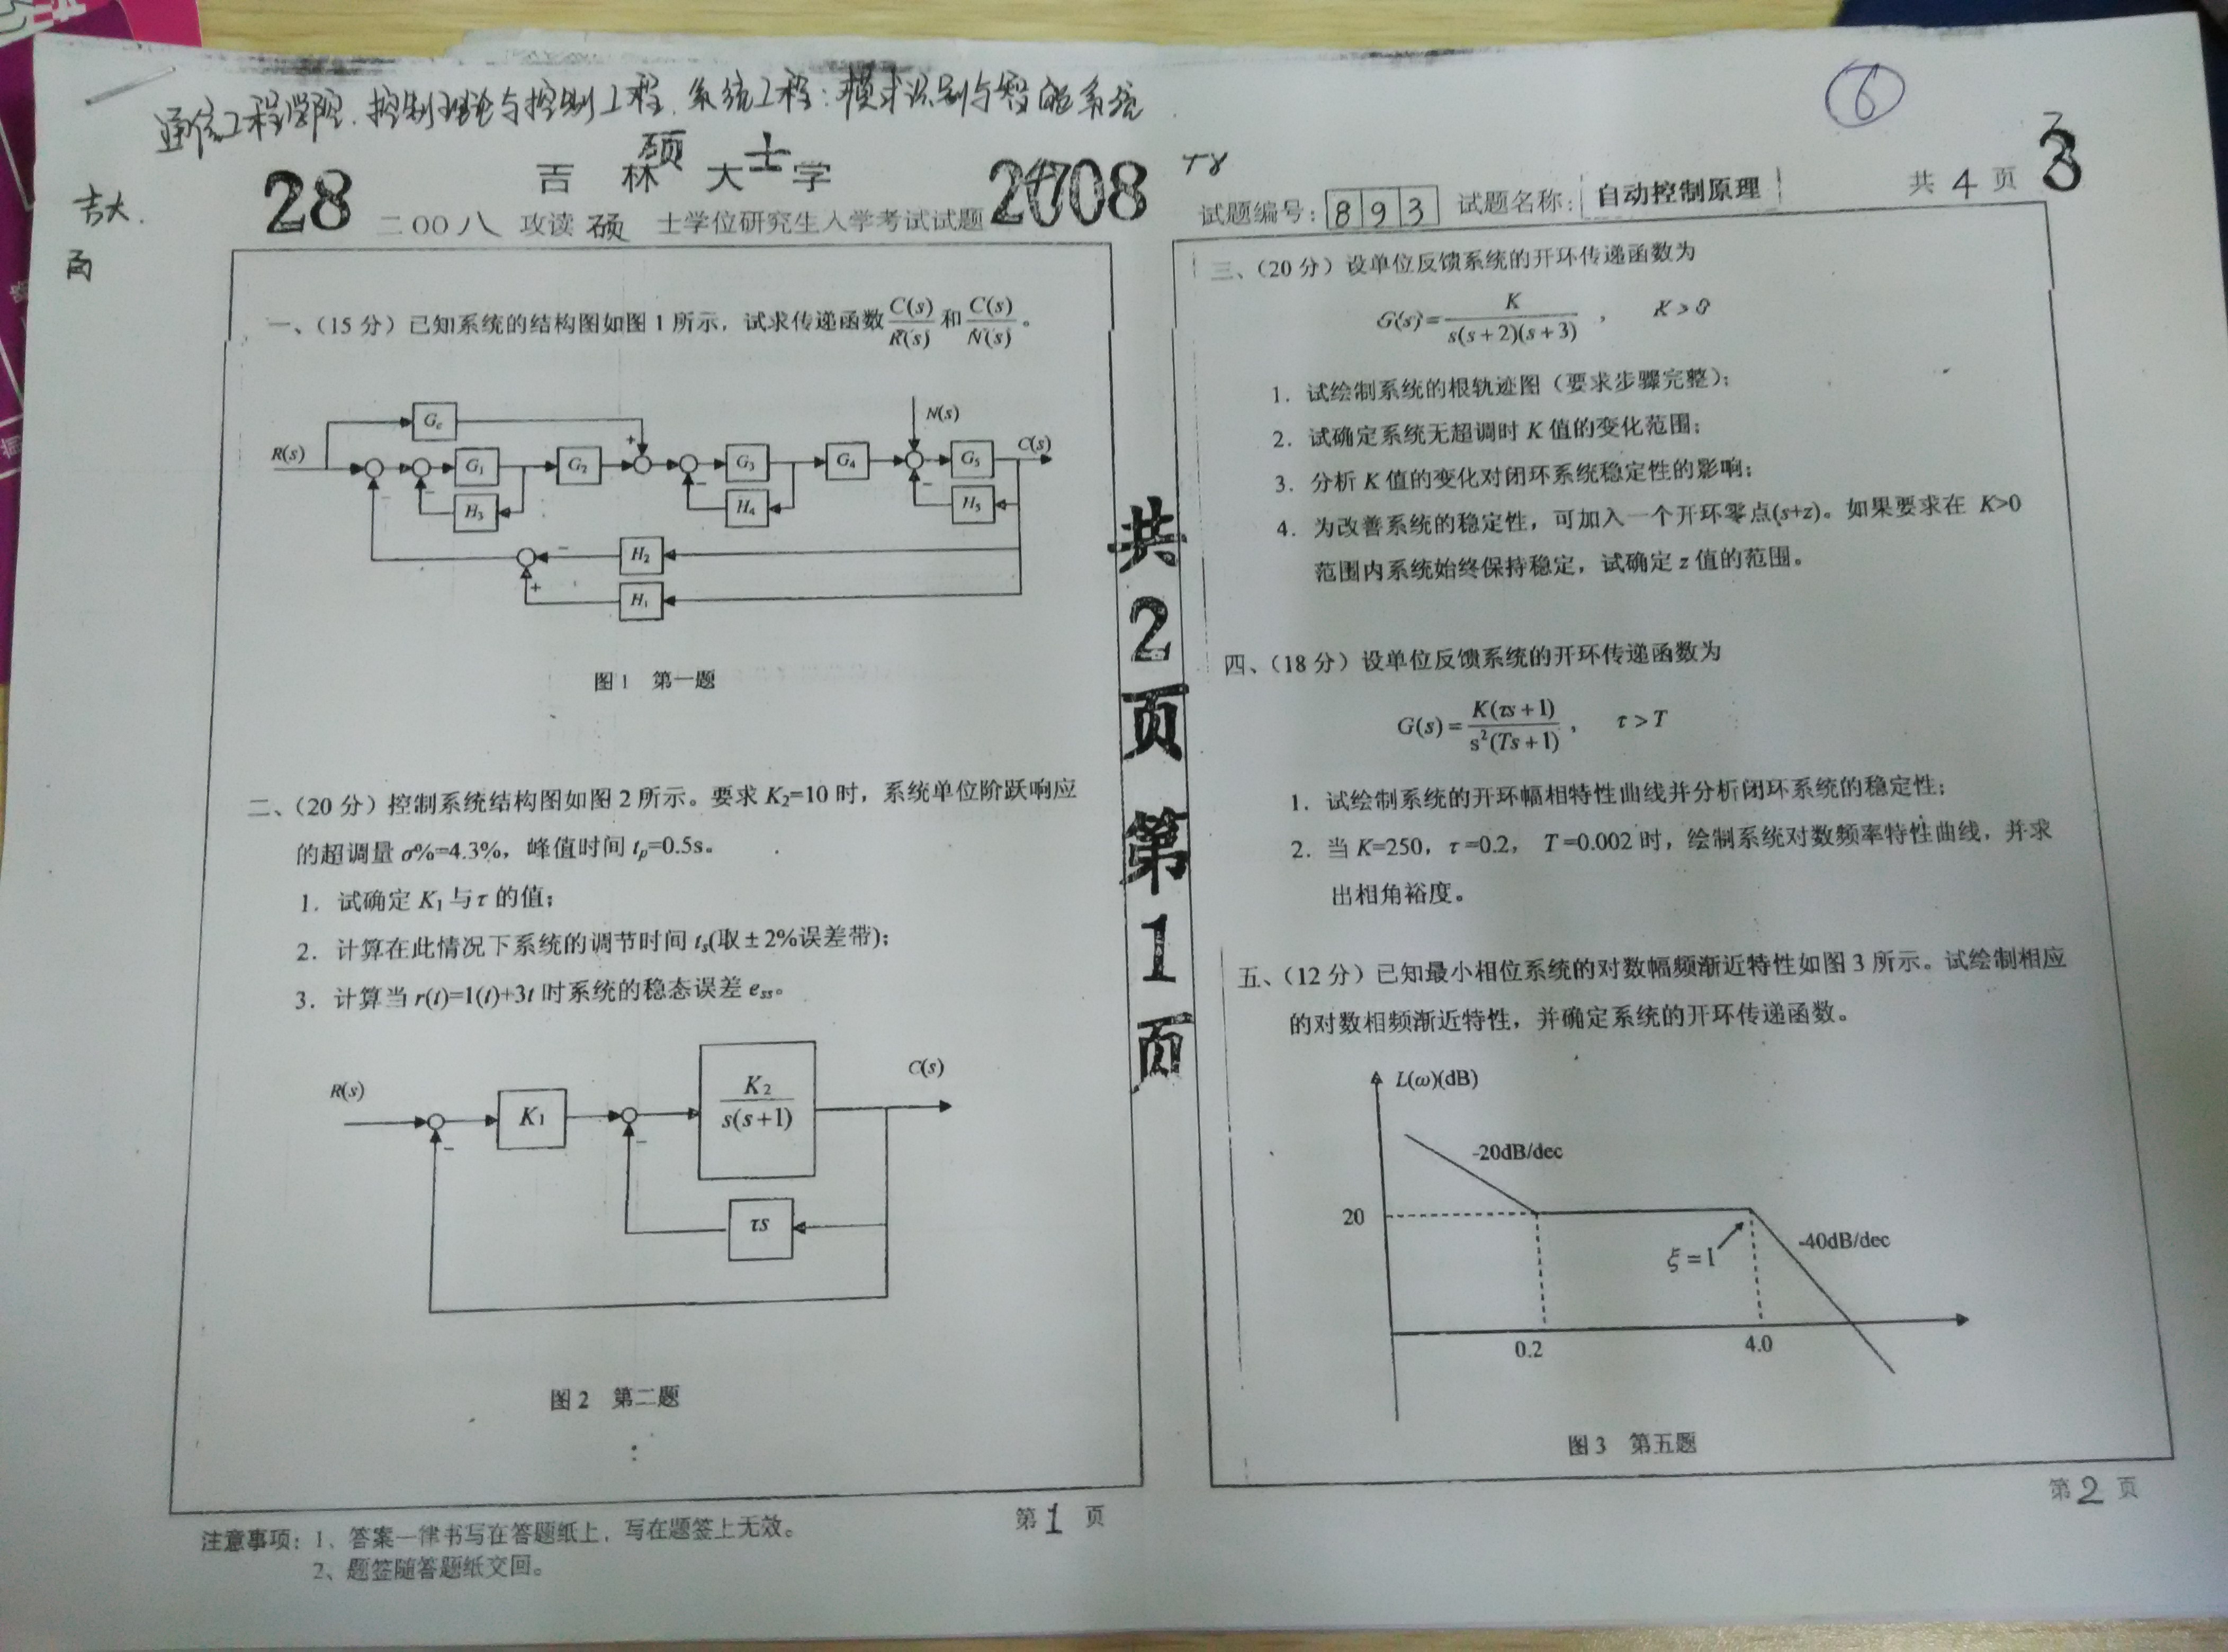 通信工程学院.控制理论与控制工程.系统工程:模式识别与智能系统
6
吉大.
28
吉 林 大 学
硕 士
2008
二00八 攻读 硕 士学位研究生入学考试试题
试题编号: 893 试题名称: 自动控制原理
共 4 页
3
一、(15 分) 已知系统的结构图如图 1 所示,试求传递函数 C(s)/R(s) 和 C(s)/N(s) 。
R(s)
Gc
G1
H3
G2
+
G3
H4
G4
N(s)
G5
H5
C(s)
H2
H1
+
图1 第一题
二、(20 分) 控制系统结构图如图 2 所示。要求 K2=10 时,系统单位阶跃响应
的超调量 σ%=4.3%,峰值时间 tp=0.5s。
1. 试确定 K1 与 τ 的值;
2. 计算在此情况下系统的调节时间 ts(取±2%误差带);
3. 计算当 r(t)=1(t)+3t 时系统的稳态误差 ess。
R(s)
K1
K2
s(s+1)
C(s)
τs
图 2 第二题
第1 页
注意事项: 1、答案一律书写在答题纸上,写在题签上无效。
2、题签随答题纸交回。
共2页 第1页
三、(20 分) 设单位反馈系统的开环传递函数为
G(s)= K / s(s+2)(s+3) , K>0
1. 试绘制系统的根轨迹图(要求步骤完整);
2. 试确定系统无超调时 K 值的变化范围;
3. 分析 K 值的变化对闭环系统稳定性的影响;
4. 为改善系统的稳定性,可加入一个开环零点(s+z)。如果要求在 K>0
范围内系统始终保持稳定,试确定 z 值的范围。
四、(18 分) 设单位反馈系统的开环传递函数为
G(s)= K(τs+1) / s²(Ts+1) , τ>T
1. 试绘制系统的开环幅相特性曲线并分析闭环系统的稳定性;
2. 当 K=250,τ=0.2, T=0.002 时,绘制系统对数频率特性曲线,并求
出相角裕度。
五、(12 分) 已知最小相位系统的对数幅频渐近特性如图 3 所示。试绘制相应
的对数相频渐近特性,并确定系统的开环传递函数。
L(ω)(dB)
-20dB/dec
20
ξ=1
-40dB/dec
0.2
4.0
图 3 第五题
第2 页